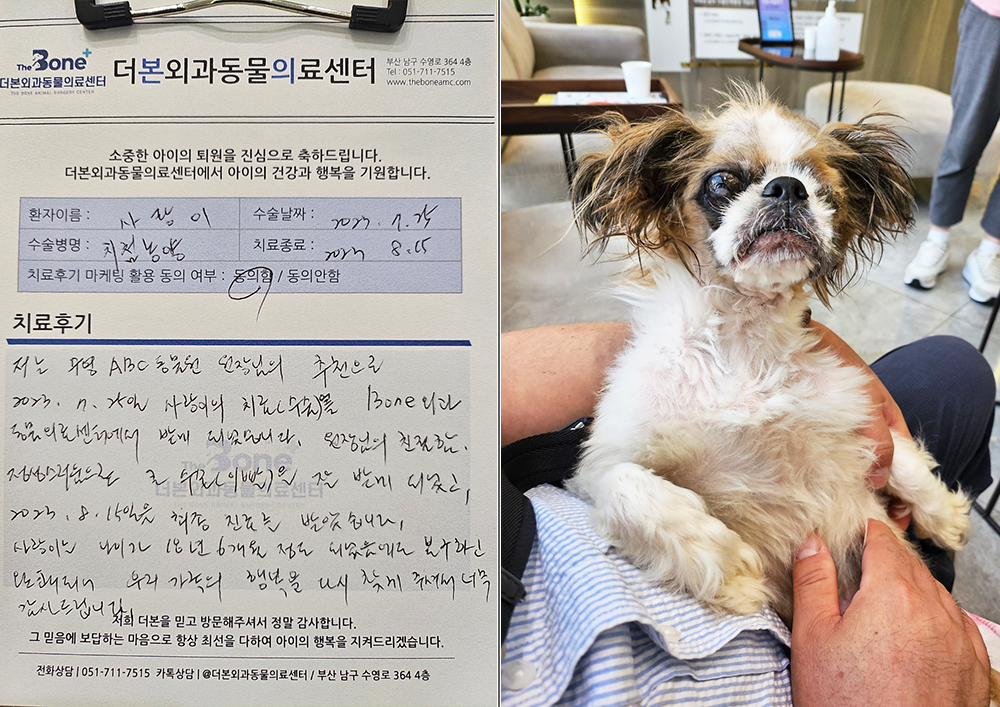 The Bone+
더본외과동물의료센터
THE BONE ANIMAL SURGERY CENTER
더본외과동물의료센터
부산 남구 수영로 364 4층
Tel : 051-711-7515
www.theboneamc.com
소중한 아이의 퇴원을 진심으로 축하드립니다.
더본외과동물의료센터에서 아이의 건강과 행복을 기원합니다.
환자이름 : 사랑이 수술날짜 : 2023. 7. 25
수술병명 : 치료종료 : 2023 8.15
치료후기 마케팅 활용 동의 여부 : 동의함 / 동의안함
치료후기
저는 ABC동물병원 원장님의 추천으로
2023. 7. 25일 사랑이의 치료(수술)를 Bone외과
동물의료센터에서 받게 되었습니다. 원장님의 친절함,
정성스러움으로 큰 치료를 잘 받게 되었고,
2023. 8. 15일은 최종 진료를 받았습니다.
사랑이는 나이가 18년 6개월 정도 되었음에도 불구하고
우리 가족의 행복을 다시 찾게 주셔서 너무
감사드립니다.
The Bone
더본외과동물의료센터
저희 더본을 믿고 방문해주셔서 정말 감사합니다.
그 믿음에 보답하는 마음으로 항상 최선을 다하여 아이의 행복을 지켜드리겠습니다.
전화상담 | 051-711-7515 카톡상담 | @더본외과동물의료센터 / 부산 남구 수영로 364 4층